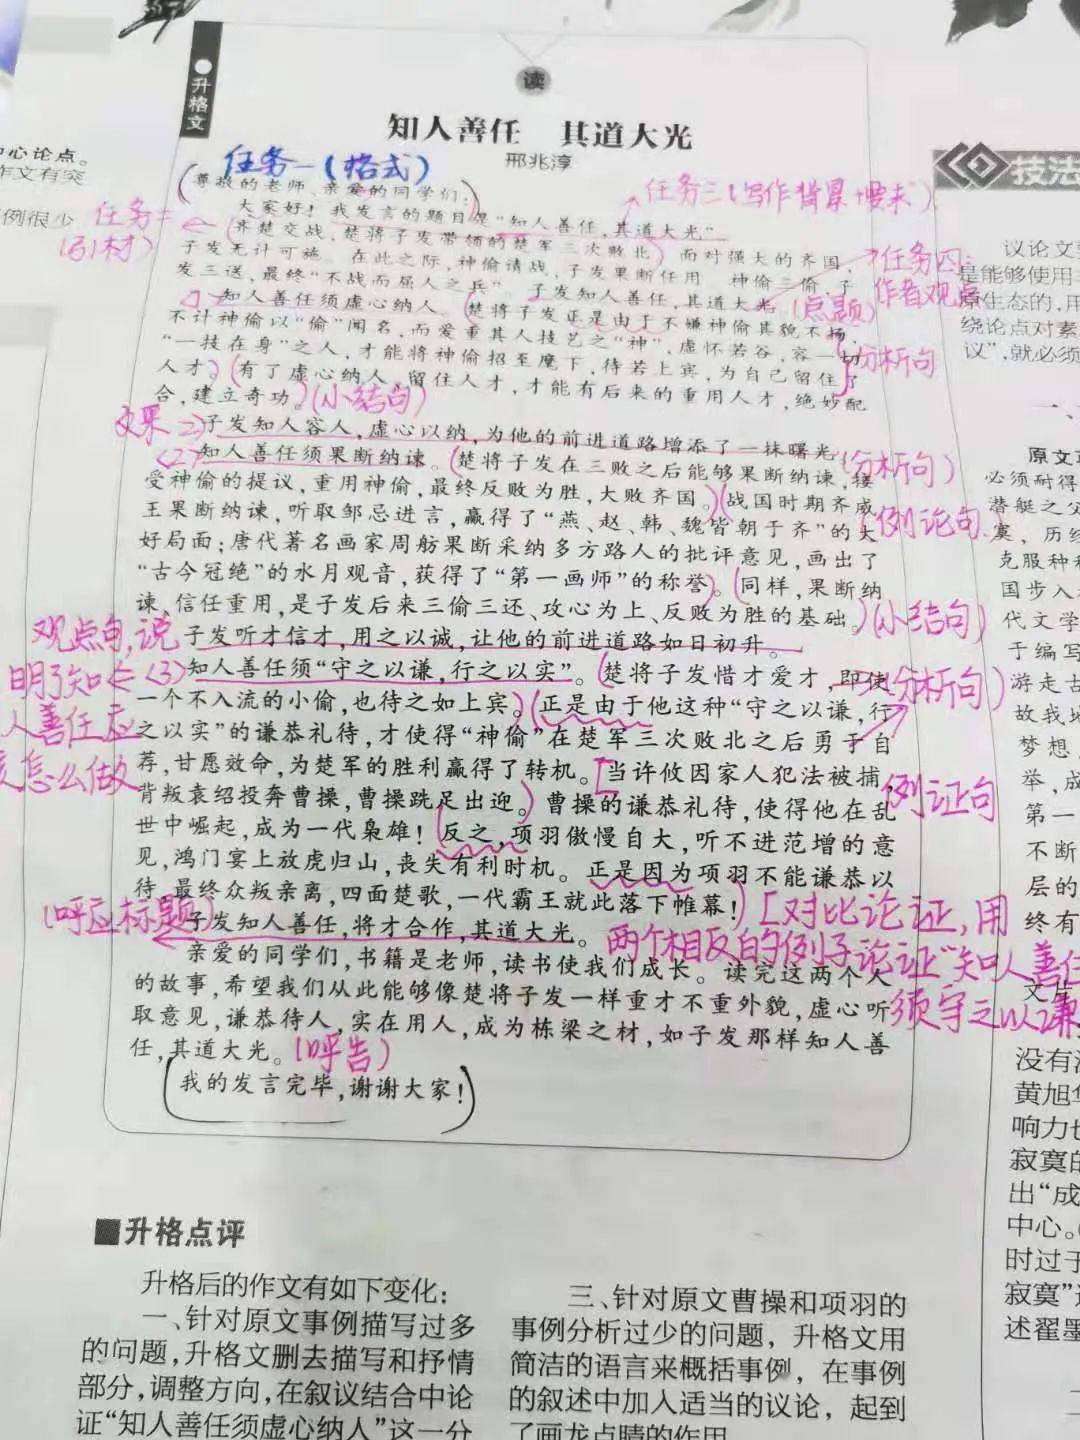 升格文
读
知人善任 其道大光
邢兆淳
任务一(格式)
尊敬的老师、亲爱的同学们:
任务三(写作背景+要求)
大家好!我发言的题目是“知人善任,其道大光”
任务二
(引材)
齐楚交战,楚将子发带领的楚军三次败北 面对强大的齐国,
子发无计可施。在此之际,神偷请战,子发果断任用 神偷三偷,子
任务四:
作者观点
(点题)
发三送,最终“不战而屈人之兵” 子发知人善任,其道大光
知人善任须虚心纳人 楚将子发正是由于不嫌神偷其貌不扬,
不计神偷以“偷”闻名,而爱重其人技艺之“神”,虚怀若谷,容一切
分析句
“一技在身”之人,才能将神偷招至麾下,待若上宾,为自己留住了
人才。(有了虚心纳人,留住人才,才能有后来的重用人才,绝妙配
合,建立奇功。(小结句)
效果
子发知人容人,虚心以纳,为他的前进道路增添了一抹曙光
<2>知人善任须果断纳谏。(楚将子发在三败之后能够果断纳谏,接
(分析句)
受神偷的提议,重用神偷,最终反败为胜,大败齐国。)(战国时期齐威
王果断纳谏,听取邹忌进言,赢得了“燕、赵、韩、魏皆朝于齐”的大
(例论句
好局面;唐代著名画家周舫果断采纳多方路人的批评意见,画出了
“古今冠绝”的水月观音,获得了“第一画师”的称誉)。(同样,果断纳
谏,信任重用,是子发后来三偷三还、攻心为上、反败为胜的基础。)(小结句)
观点句,说
明了知
人善任应
怎么做
子发听才信才,用之以诚,让他的前进道路如日初升。
<3>知人善任须“守之以谦,行之以实”。(楚将子发惜才爱才,即使
分析句)
一个不入流的小偷,也待之如上宾。)(正是由于他这种“守之以谦,行
之以实”的谦恭礼待,才使得“神偷”在楚军三次败北之后勇于自
荐,甘愿效命,为楚军的胜利赢得了转机。[当许攸因家人犯法被捕,
例证句
背叛袁绍投奔曹操,曹操跣足出迎。)曹操的谦恭礼待,使得他在乱
世中崛起,成为一代枭雄!(反之,项羽傲慢自大,听不进范增的意
见,鸿门宴上放虎归山,丧失有利时机。正是因为项羽不能谦恭以
待,最终众叛亲离,四面楚歌,一代霸王就此落下帷幕!)
[对比论证,用
两个相反的例子论证“知人善任
须守之以谦
(呼应标题)
子发知人善任,将才合作,其道大光。
亲爱的同学们,书籍是老师,读书使我们成长。读完这两个人
的故事,希望我们从此能够像楚将子发一样重才不重外貌,虚心听
取意见,谦恭待人,实在用人,成为栋梁之材,如子发那样知人善
任,其道大光。(呼告)
(我的发言完毕,谢谢大家!)
■升格点评
升格后的作文有如下变化:
一、针对原文事例描写过多
的问题,升格文删去描写和抒情
部分,调整方向,在叙议结合中论
证“知人善任须虚心纳人”这一分
三、针对原文曹操和项羽的
事例分析过少的问题,升格文用
简洁的语言来概括事例,在事例
的叙述中加入适当的议论,起到
了画龙点睛的作用
中心论点。
作文有突
例很少
技法
议论文
是能够使用
原生态的,用
绕论点对素
议”,就必须
一、
原文
必须耐得
潜艇之父
寞,历经
克服种种
国步入
代文学
于编写
游走古
故我
梦想,
举,成
第一
不断
层的
终有
文
没有
黄旭华
响力也
寂寞的
出“成
中心。
时过于
寂寞”
述翟墨